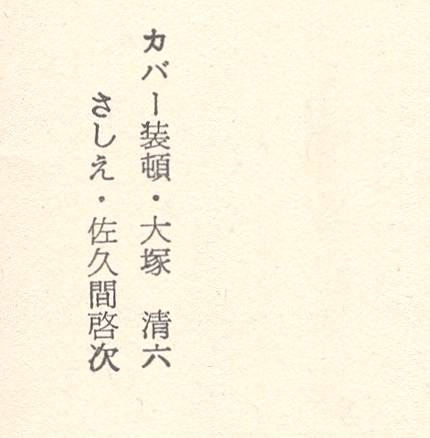 カバー装頓・大塚　清六
さしえ・佐久間啓次